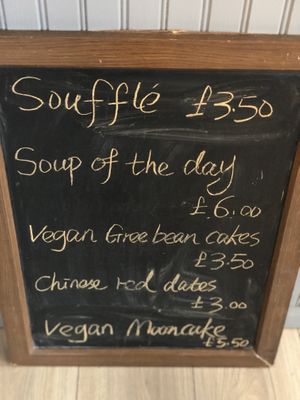 Soufflé £3.50
Soup of the day
£6.00
Vegan Gree bean cakes
£3.50
Chinese red dates
£3.00
Vegan Mooncake
£5.50